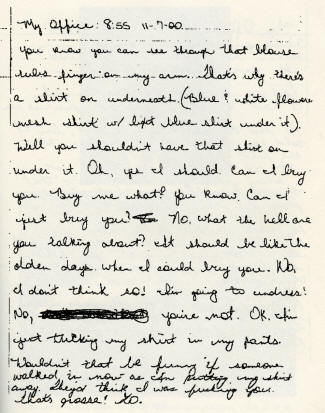 My Office 8:55 11-7-00
You know you can see through that blouse
rubs finger on my arm. That's why there's
a shirt on underneath. (Blue & white flowers
mesh shirt w/ light blue shirt under it).
Well you shouldn't have that shirt on
under it. Oh, yes I should. Can I buy
you. Buy me what? You know. Can I
just buy you? No, what the hell are
you talking about? It should be like the
olden days when I could buy you. No,
I don't think so! I'm going to undress!
No, you're not. OK. I'm
just tucking my shirt in my pants.
Wouldn't that be funny if someone
walked in now as I'm putting my shirt
away. They'd think I was
That's grosse! No.